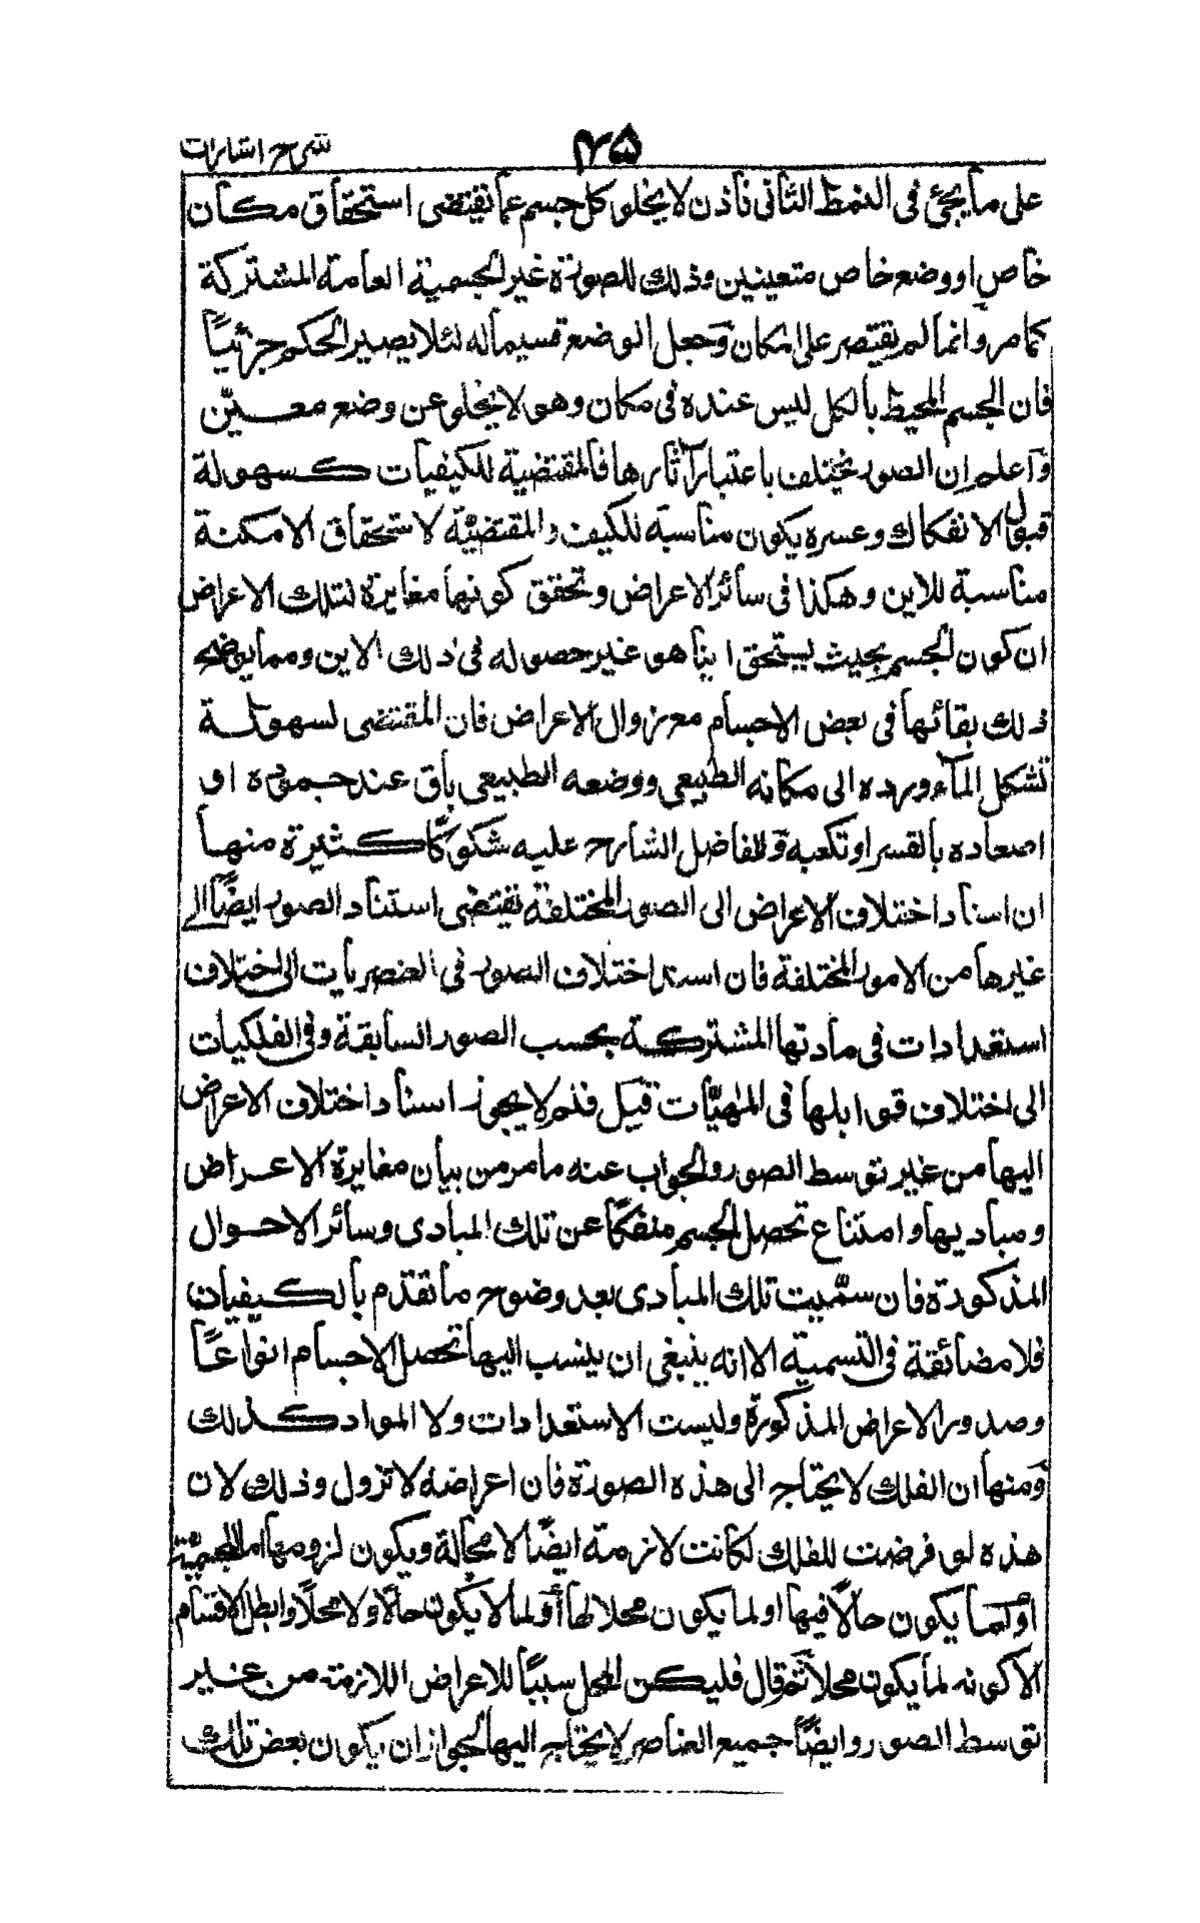 ۴۵ شرح اشارات
على ما يجئ فى النمط الثانى فاذن لا يخلو كل جسم عما يقتضى استحقاق مكان
خاص او وضع خاص متعينين وذلك للصورة غير الجسمية العامة المشتركة
كما مر وانما لم يقتصر على المكان وجعل الوضع قسيما له لئلا يصير الحكم جزئيًا
فان الجسم المحيط بالكل ليس عنده فى مكان وهو لا يخلو عن وضع معيّن
وآعلم ان الصور يختلف باعتبار آثارها فالمقتضية للكيفيات كسهولة
قبول الانفكاك وعسره يكون مناسبة للكيف والمقتضيّة لاستحقاق الامكنة
مناسبة للاين وهكذا فى سائر الاعراض وتحقق كونها مغايرة لتلك الاعراض
ان كون الجسم بحيث يستحق اينا هو غير حصوله فى ذلك الاين ومما يوضحه
ذلك بقائها فى بعض الاجسام مع زوال الاعراض فان المقتضى لسهولة
تشكل المآء ورده الى مكانه الطبيعى ووضعه الطبيعى باق عند جموده او
اصعاده بالقسر او تكعبه وللفاضل الشارح عليه شكوكًا كثيرة منها
ان اسناد اختلاف الاعراض الى الصور المختلفة يقتضى استناد الصور ايضًا الى
غيرها من الامور المختلفة فان اسند اختلاف الصور فى العنصريات الى اختلاف
استعدادات فى مادتها المشتركة بحسب الصور السابقة وفى الفلكيات
الى اختلاف قوابلها فى المهيّات قيل فلم لا يجوز اسناد اختلاف الاعراض
اليها من غير توسط الصور والجواب عنه ما مر من بيان مغايرة الاعراض
ومباديها وامتناع تحصل الجسم منفكًا عن تلك المبادى وسائر الاحوال
المذكورة فان سمّيت تلك المبادى بعد وضوح ما تقدم بالكيفيات
فلا مضائقة فى التسمية الا انه ينبغى ان ينسب اليها تحصل الاجسام انواعًا
وصدور الاعراض المذكورة وليست الاستعدادات ولا المواد كذلك
ومنها ان الفلك لا يحتاج الى هذه الصورة فان اعراضه لا تزول وذلك لان
هذه لو فرضت للفلك لكانت لازمة ايضًا لا محالة ويكون لزومها اما للجسميّة
او لما يكون حالًا فيها او لما يكون محلا لها او لما لا يكون حالًا ولا محلًا وابطل الاقسام
الا كونه لما يكون محلا ثم قال فليكن المحل سببًا للاعراض اللازمة من غير
توسط الصور وايضًا جميع العناصر لا يحتاج اليها لجواز ان يكون بعض تلك